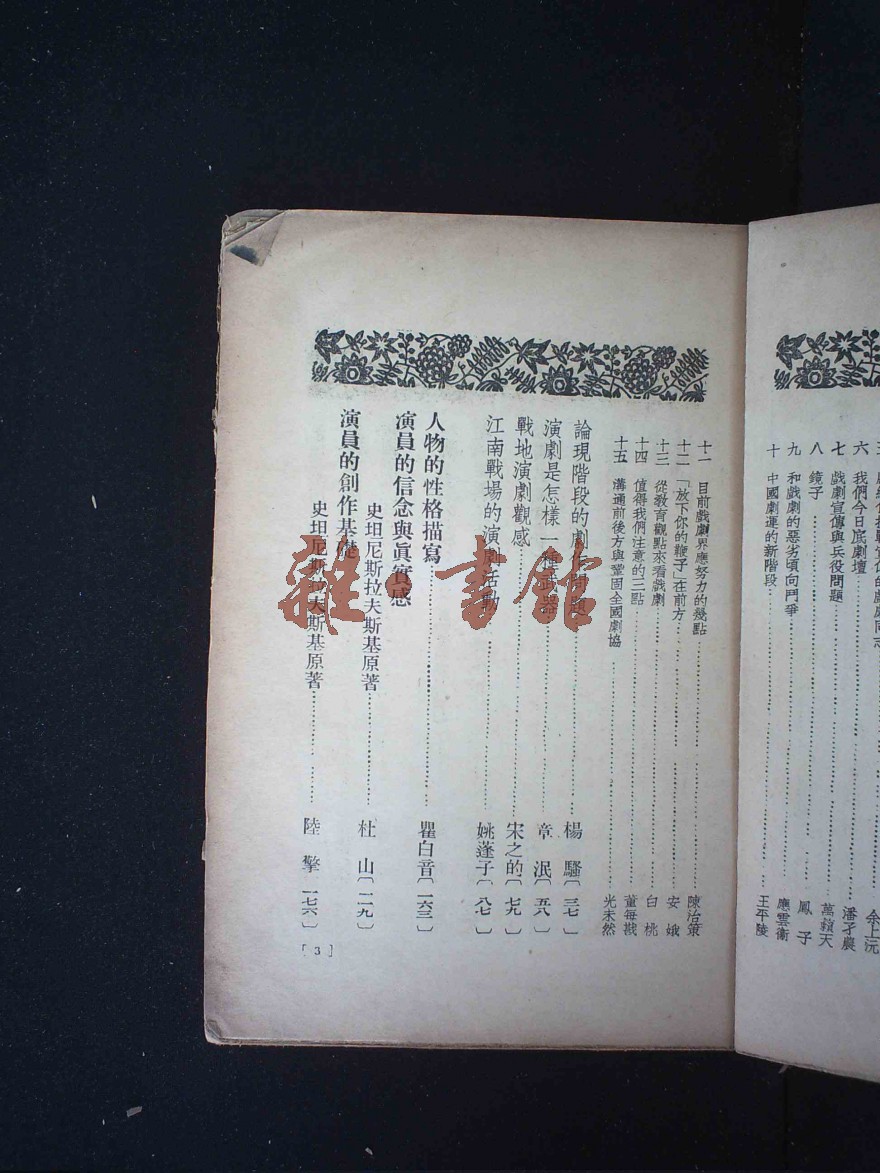 余上沅
六 我們今日底劇壇 潘孑農
七 戲劇宣傳與兵役問題 萬籟天
八 鏡子 鳳子
九 和戲劇的惡劣傾向鬥爭 應雲衛
十 中國劇運的新階段 王平陵
十一 目前戲劇界應努力的幾點 陳治策
十二 「放下你的鞭子」在前方 安娥
十三 從教育觀點來看戲劇 白桃
十四 值得我們注意的三點 董每戡
十五 溝通前後方與鞏固全國劇協 光未然
論現階段的劇作問題 楊騷〔三七〕
演劇是怎樣一種武器 章泯〔五八〕
戰地演劇觀感 宋之的〔七九〕
江南戰場的演劇活動 姚蓬子〔八七〕
人物的性格描寫 瞿白音〔一六三〕
演員的信念與眞實感
史坦尼斯拉夫斯基原著 杜山〔一二九〕
演員的創作基礎
史坦尼斯拉夫斯基原著 陸擎〔一七六〕
[3]
雜·書館